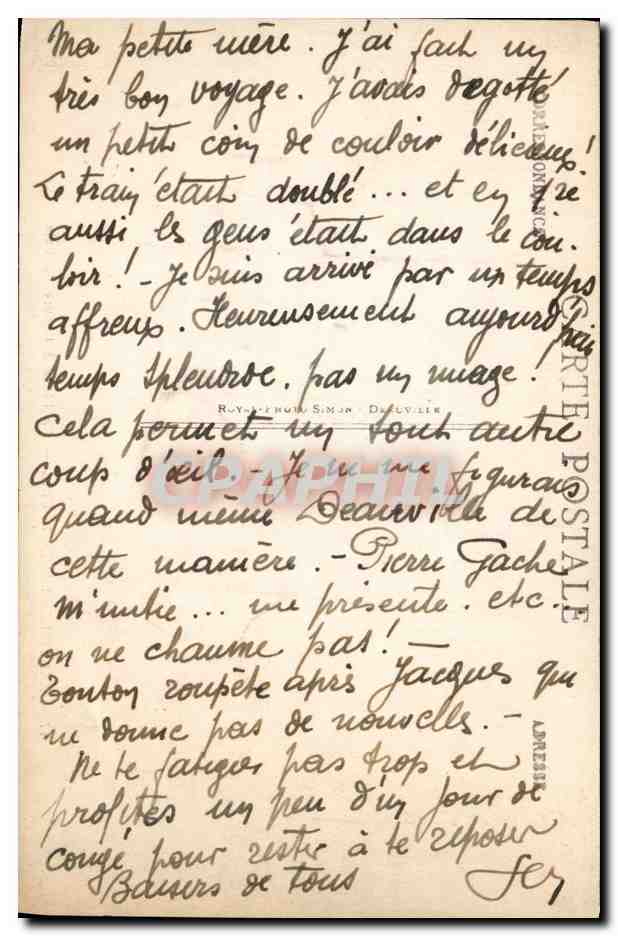 Ma petite mère. J'ai fait un
très bon voyage. J'avais dégotté
un petit coin de couloir délicieux!
Le train était doublé... et en 1re
aussi les gens était dans le cou-
loir! - Je suis arrivé par un temps
affreux. Heureusement aujourd'hui
temps splendide. pas un nuage!
ROYAL-PHOTO SIMON DEAUVILLE
Cela permet un tout autre
coup d'œil. - Je ne me figurais
quand même Deauville de
cette manière. - Pierre Gache
m'initie... me présente. etc.
on ne chaume pas! -
Tonton rouspète après Jacques qui
ne donne pas de nouvelles. -
Ne te fatigue pas trop et
profites un peu d'un jour de
congé pour rester à te reposer
Baisers de tous
CORRESPONDANCE
CARTE POSTALE
ADRESSE
CPAPHIL